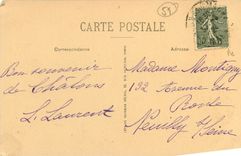 51
CARTE POSTALE
Correspondance
Adresse
Bon souvenir
de Châlons
L. Laurent
Madame Montigny
192 Avenue du
Roule
Neuilly s/ Seine